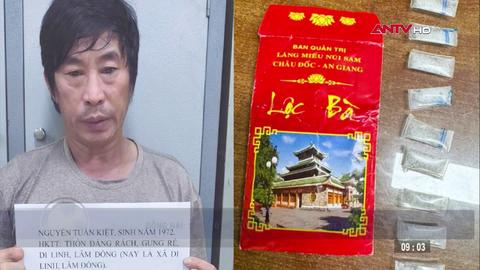 ANTV HD
BAN QUẢN TRỊ
LĂNG MIẾU NÚI SAM
CHÂU ĐỐC - AN GIANG
Lộc Bà
NGUYỄN TUẤN KIỆT, SINH NĂM 1972.
HKTT: THÔN ĐĂNG RÁCH, GUNG RÉ,
DI LINH, LÂM ĐỒNG (NAY LÀ XÃ DI
LINH, LÂM ĐỒNG).
09:03